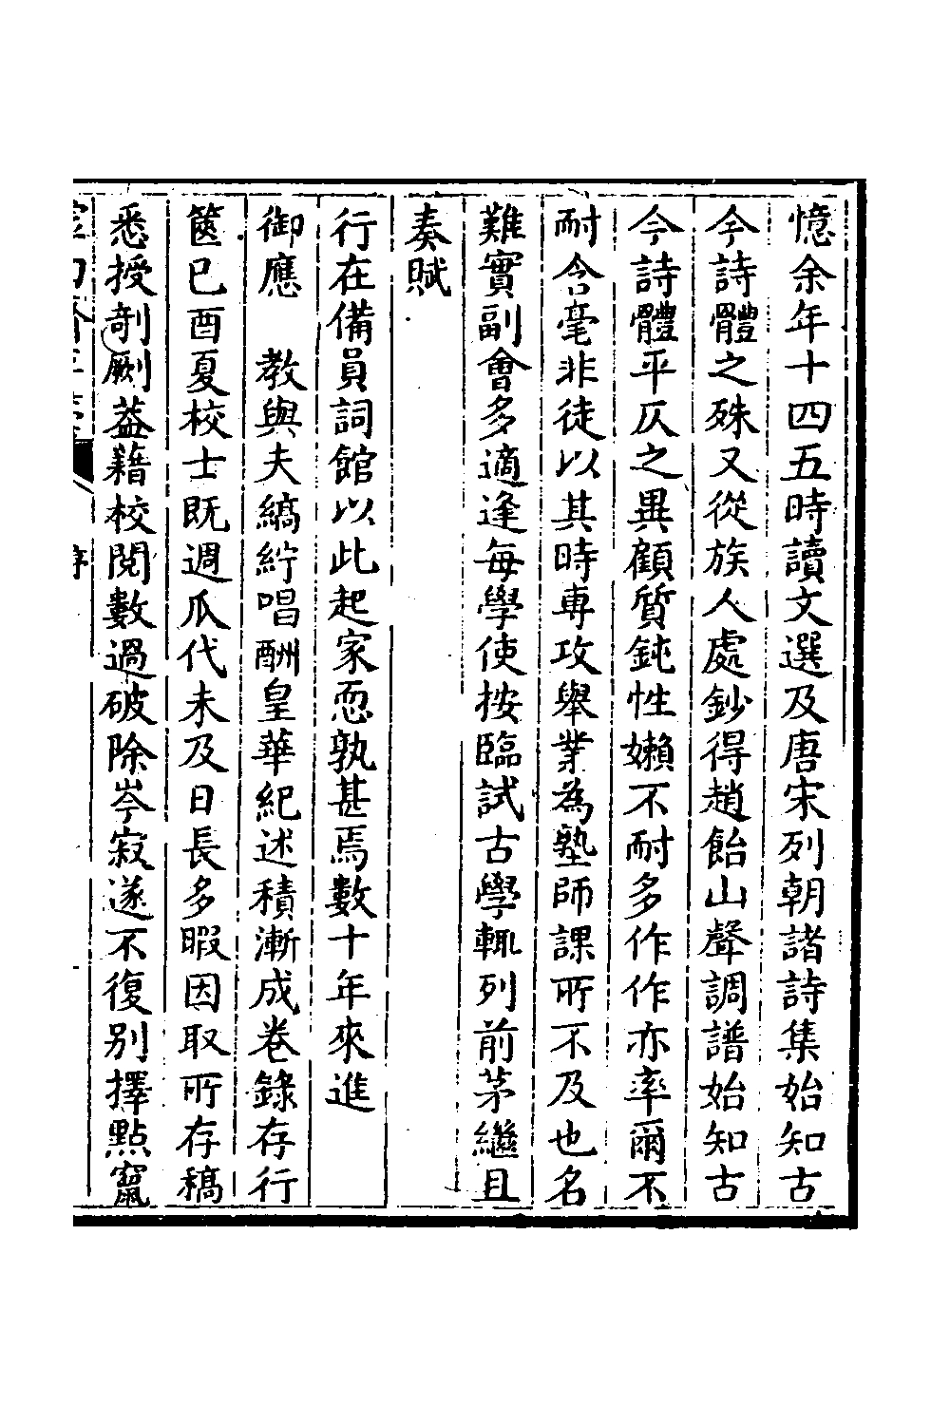 憶余年十四五時讀文選及唐宋列朝諸詩集始知古
今詩體之殊又從族人處鈔得趙飴山聲調譜始知古
今詩體平仄之異顧質鈍性嬾不耐多作作亦率爾不
耐含毫非徒以其時專攻舉業為塾師課所不及也名
難實副會多適逢每學使按臨試古學輒列前茅繼且
奏賦
行在備員詞館以此起家恧孰甚焉數十年來進
御應　教與夫縞紵唱酬皇華紀述積漸成卷錄存行
篋已酉夏校士既週瓜代未及日長多暇因取所存稿
悉授剞劂葢藉校閱數過破除岑寂遂不復别擇點竄
序